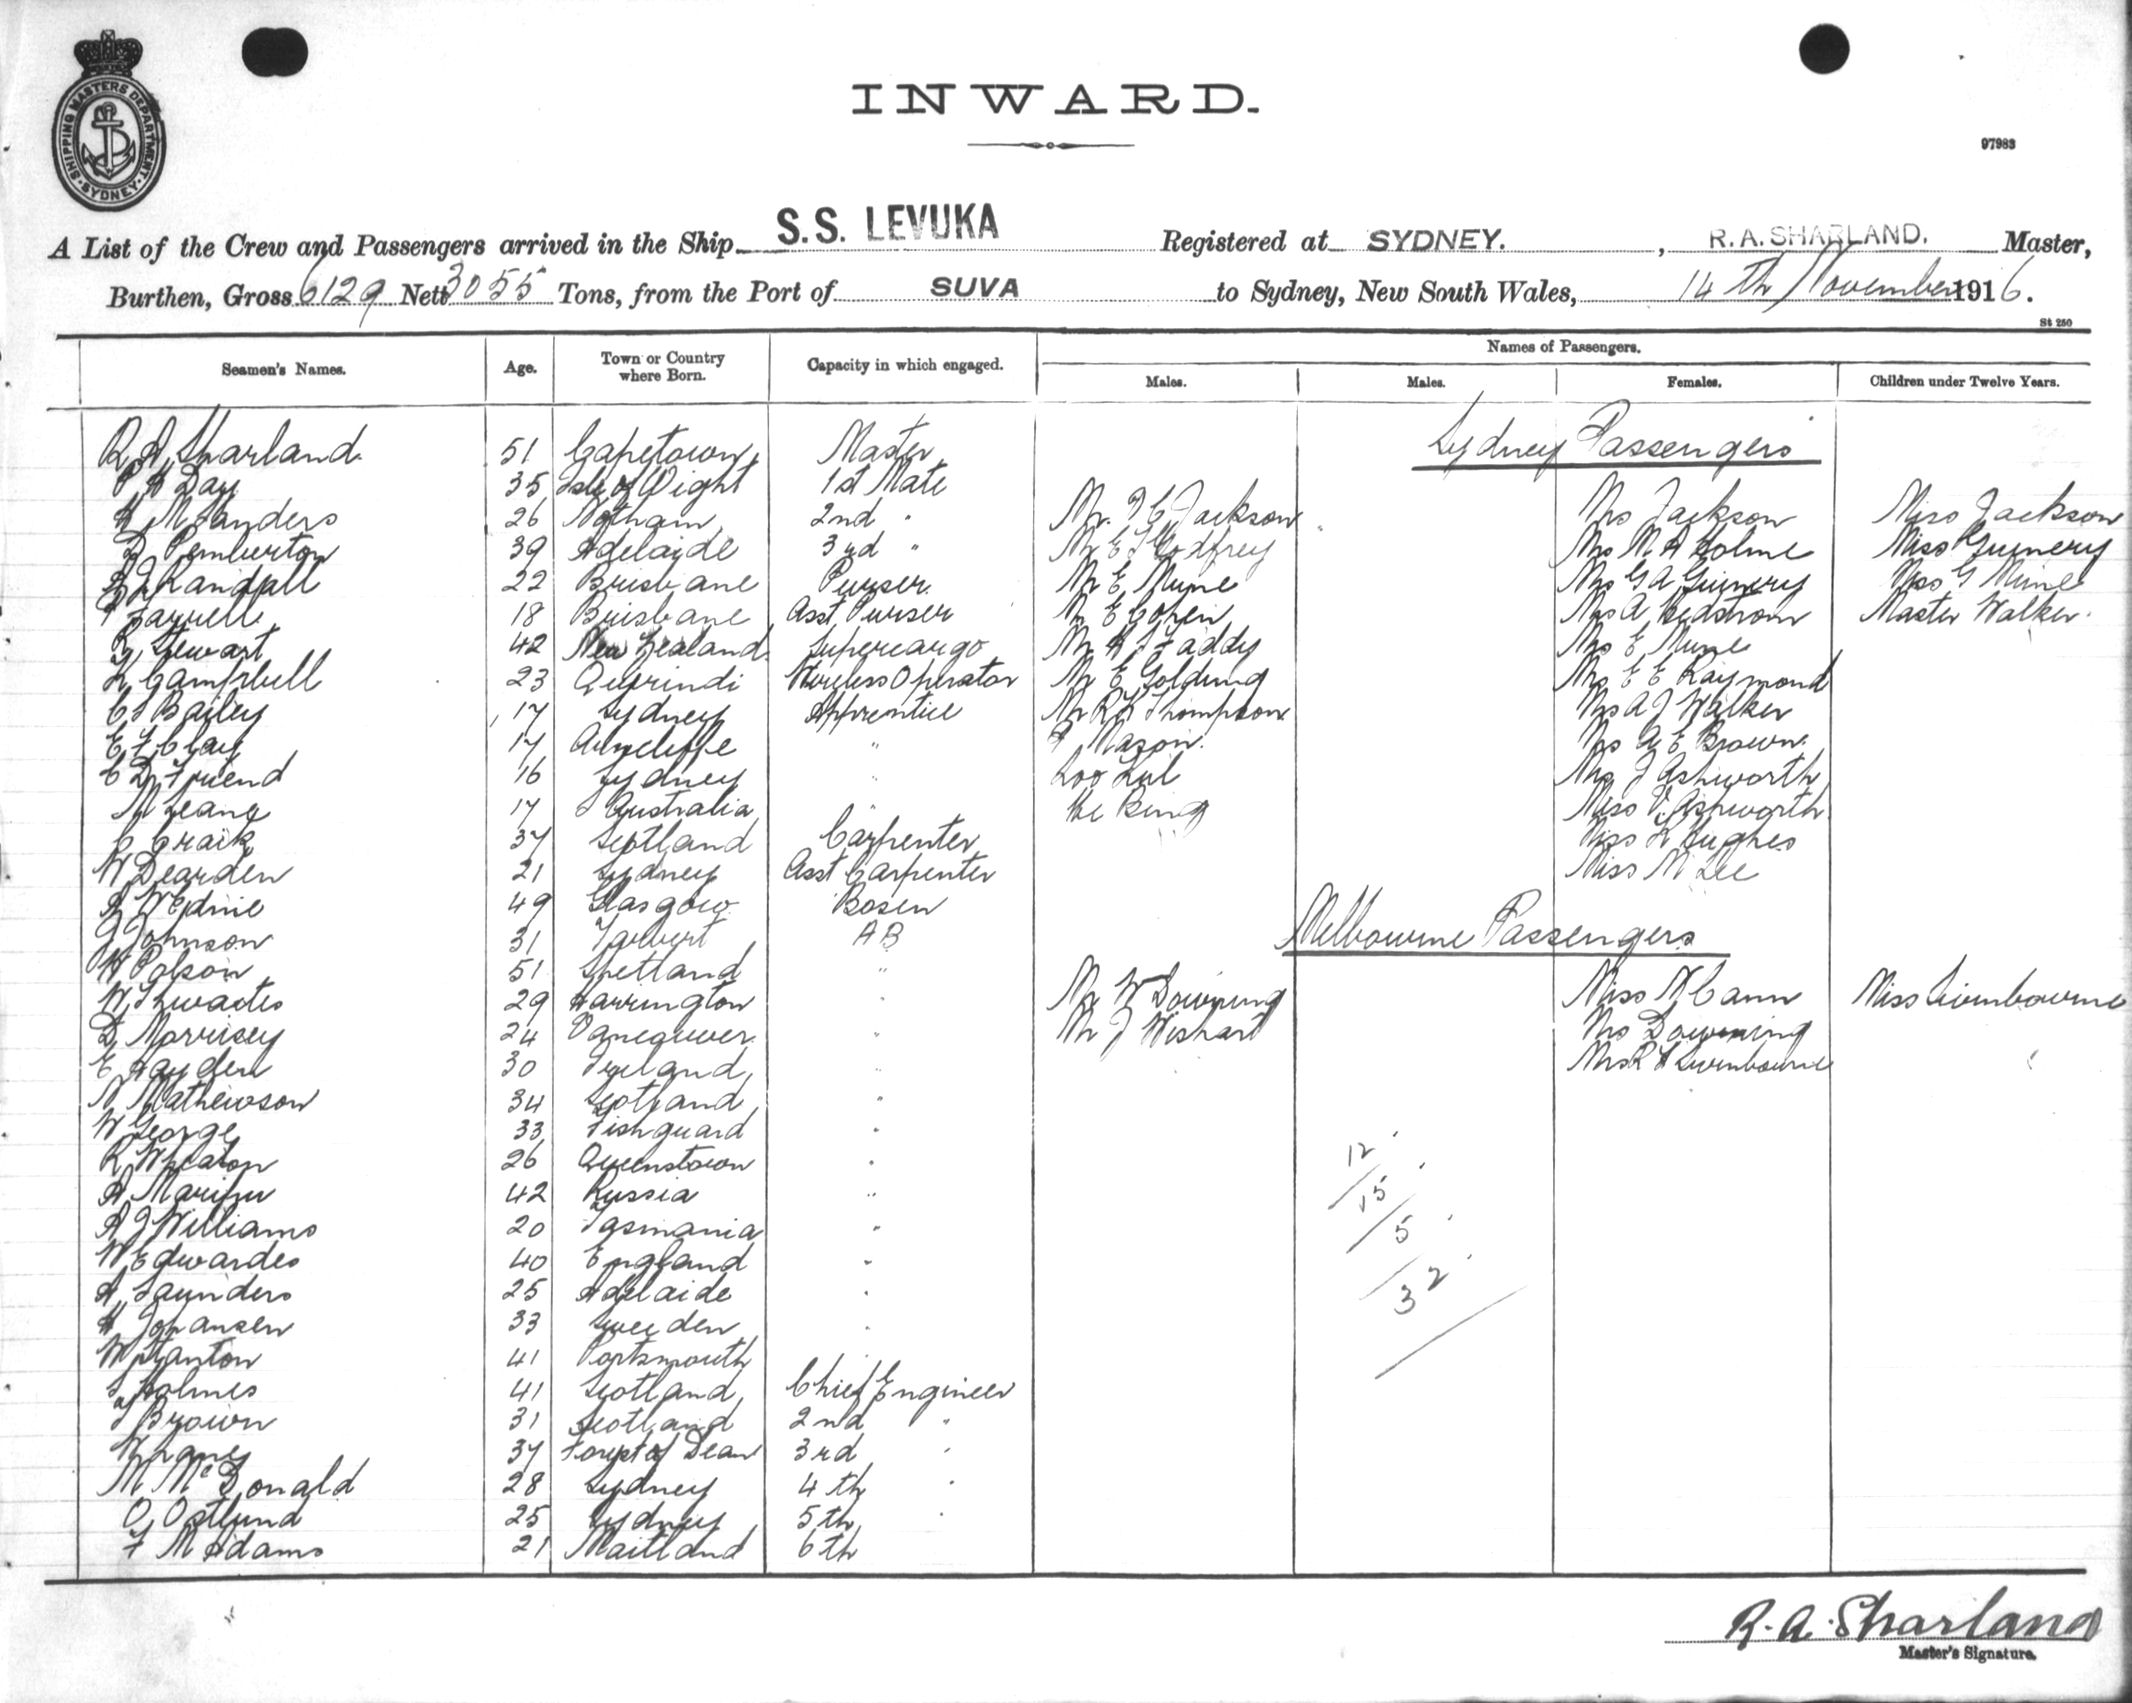 SHIPPING MASTERS DEPARTMENT
SYDNEY
INWARD.
97983
A List of the Crew and Passengers arrived in the Ship S.S. LEVUKA Registered at SYDNEY. , R.A. SHARLAND. Master,
Burthen, Gross 6129 Nett 3055 Tons, from the Port of SUVA to Sydney, New South Wales, 14th November 1916.
St 250
Seamen's Names. Age. Town or Country where Born. Capacity in which engaged. Names of Passengers.
Males. Males. Females. Children under Twelve Years.
Sydney Passengers
R A Sharland 51 Capetown Master
Day 35 Isle of Wight 1st Mate
H M Sanders 26 2nd " Mr. F C Jackson Mrs Jackson Miss Jackson
Pemberton 39 Adelaide 3rd " Mr E Godfrey Mrs M A Holme Miss Guinery
Randall 22 Brisbane Purser Mr E Mune Mrs G A Guinery Miss G Mune
Farrell 18 Brisbane Asst Purser Mr E Cohen Mrs A Hedstrom Master Walker
R Stewart 42 New Zealand Supercargo Mr Faddy Mrs E Mune
Campbell 23 Quirindi Wireless Operator Mr E Golding Mrs E E Raymond
C S Bailey 17 Sydney Apprentice Mr R H Thompson Mrs A J Walker
E F Clay 17 Arncliffe " Mason Mrs A E Brown
E D Friend 16 Sydney " Loo Kul Mrs J Ashworth
M Leane 17 Australia " He Bing Miss V Ashworth
Craik 37 Scotland Carpenter Miss L Hughes
W Dearden 21 Sydney Asst Carpenter Miss M Lee
49 Glasgow Bosen
J Johnson 31 Tarbert AB
Melbourne Passengers
H Polson 51 Shetland "
W Thwaites 29 Harrington " Mr W Downing Miss N Cann Miss Swinbourne
D Morrisey 24 Vancouver " Mr J Wishart Mrs Downing
E Hayden 30 Ireland " Mrs R H Swinbourne
N Mathewson 34 Scotland "
W George 33 Fishguard "
R Wheaton 26 Queenstown "
A 42 Russia "
A J Williams 20 Tasmania "
W Edwardes 40 England "
A Saunders 25 Adelaide "
H Johansen 33 Sweeden "
W Stanton 41 Portsmouth "
12
15
5
32
S Holmes 41 Scotland Chief Engineer
J Brown 31 Scotland 2nd "
37 Forest of Dean 3rd "
M McDonald 28 Sydney 4th "
O Ostlund 25 Sydney 5th "
F M Adams 21 Maitland 6th
R. A. Sharland
Master's Signature.